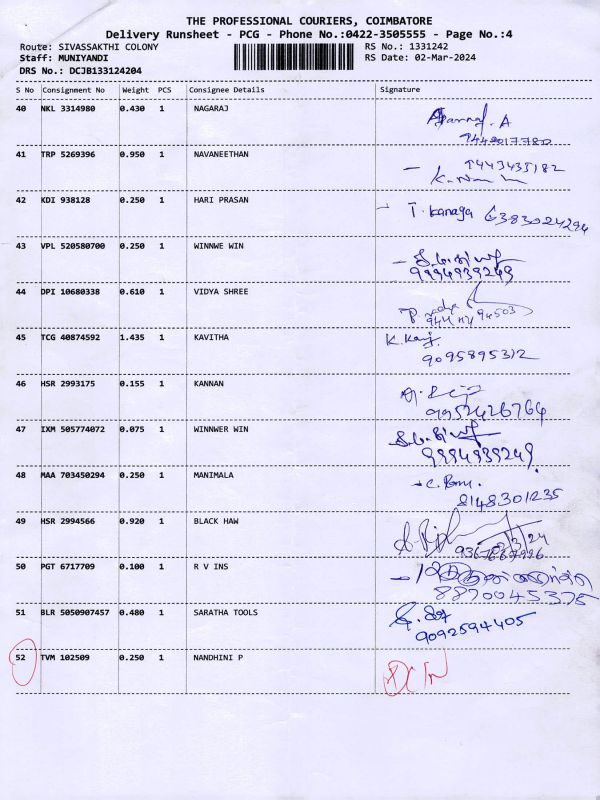 THE PROFESSIONAL COURIERS, COIMBATORE
Delivery Runsheet - PCG - Phone No.:0422-3505555 - Page No.:4
Route: SIVASSAKTHI COLONY RS No.: 1331242
Staff: MUNIYANDI RS Date: 02-Mar-2024
DRS No.: DCJB133124204
S No Consignment No Weight PCS Consignee Details Signature
40 NKL 3314980 0.430 1 NAGARAJ
41 TRP 5269396 0.950 1 NAVANEETHAN
9443435182
42 KDI 938128 0.250 1 HARI PRASAN
T. Kanaga 6383024294
43 VPL 520580700 0.250 1 WINNWE WIN
9994939249
44 DPI 10680338 0.610 1 VIDYA SHREE
45 TCG 40874592 1.435 1 KAVITHA
9095895312
46 HSR 2993175 0.155 1 KANNAN
9952426764
47 IXM 505774072 0.075 1 WINNWER WIN
9994939249
48 MAA 703450294 0.250 1 MANIMALA
8148301235
49 HSR 2994566 0.920 1 BLACK HAW
50 PGT 6717709 0.100 1 R V INS
8870045375
51 BLR 5050907457 0.480 1 SARATHA TOOLS
9092594405
52 TVM 102509 0.250 1 NANDHINI P